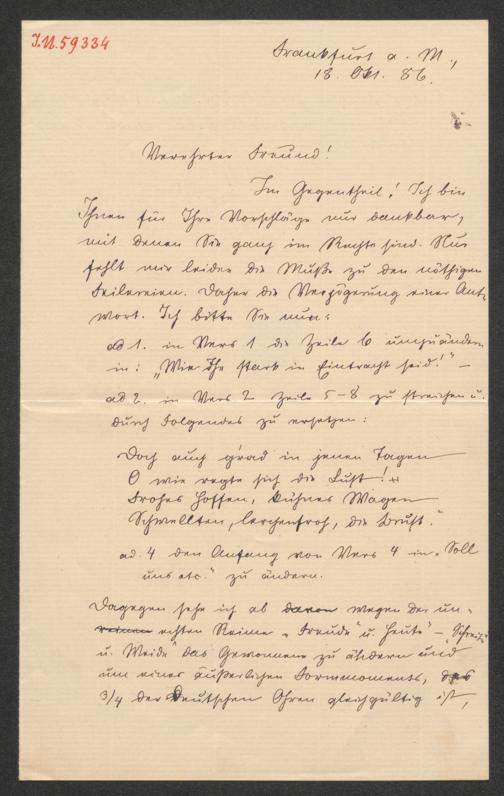 I.N. 59334
Frankfurt a. M.,
18. Okt. 86.
Verehrter Freund!
Im Gegentheil! Ich bin
Ihnen für Ihre Vorschläge nur dankbar,
mit denen Sie ganz im Rechte sind. Nur
fehlt mir leider die Muße zu den nöthigen
Feilereien. Daher die Verzögerung einer Ant-
wort. Ich bitte Sie nun:
ad 1. in Vers 1 die Zeile 6 umzuändern
in: „Wie Ihr stark in Eintracht seid!" –
ad 2. in Vers 2 Zeile 5–8 zu streichen u.
durch Folgendes zu ersetzen:
Doch auch g'rad in jenen Tagen
O wie regte sich die Lust!
Frohes Hoffen, kühnes Wagen
Schwellten, lerchenfroh, die Brust."
ad. 4 den Anfang von Vers 4 in „Soll
uns etc." zu ändern.
Dagegen sehe ich ab davon wegen der un-
reinen echten Reime „Freude" u. heute" – „Scheide
u. Weide" das Gewonnene zu ändern und
um eines äußerlichen Formmoments, das
3/4 der deutschen Ohren gleichgültig ist,